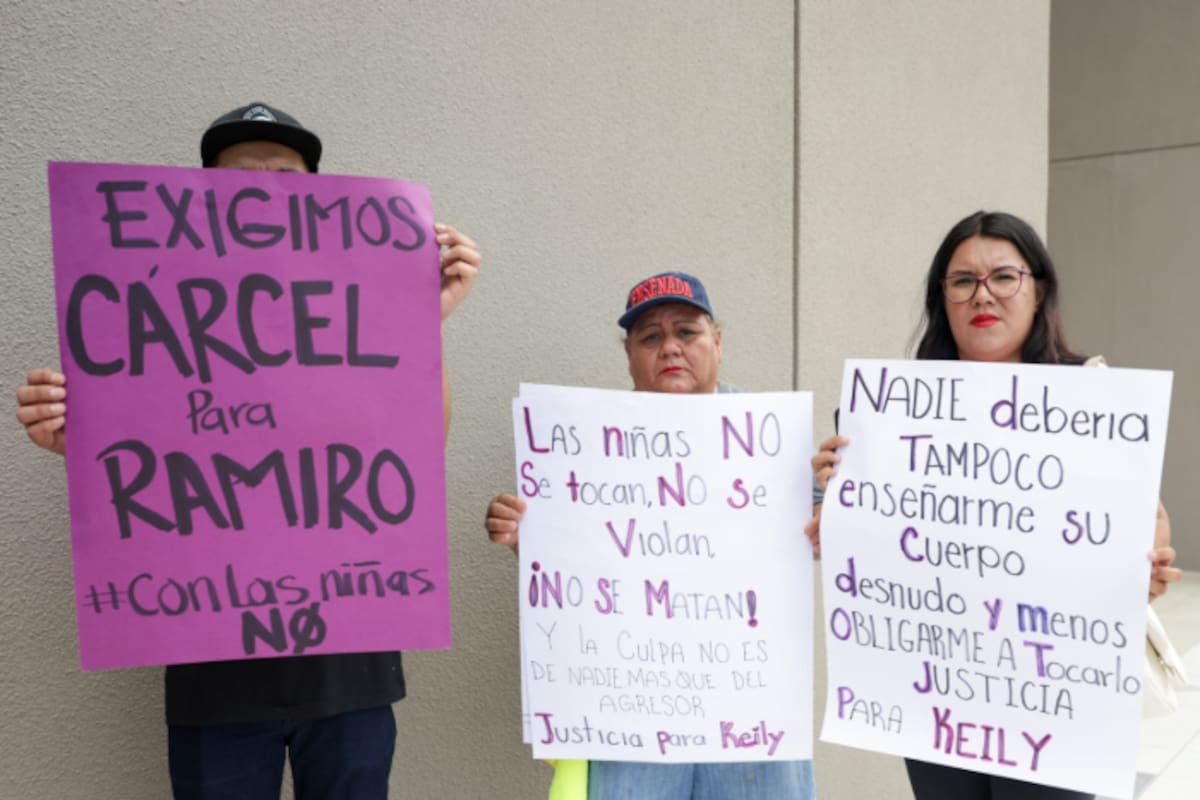 EXIGIMOS
CÁRCEL
Para
RAMIRO
#Con Las niñas
NO
ENSENADA
LAS niÑAS NO
Se tocan, NO se
Violan,
¡NO SE MATAN!
Y LA CULPA NO ES
DE NADIE MAS QUE DEL
AGRESOR
Justicia para Keily
NADIE deberia
TAMPOCO
enseñarme su
Cuerpo
desnudo y menos
OBLIGARME A Tocarlo
JUSTICIA
PARA KEILY